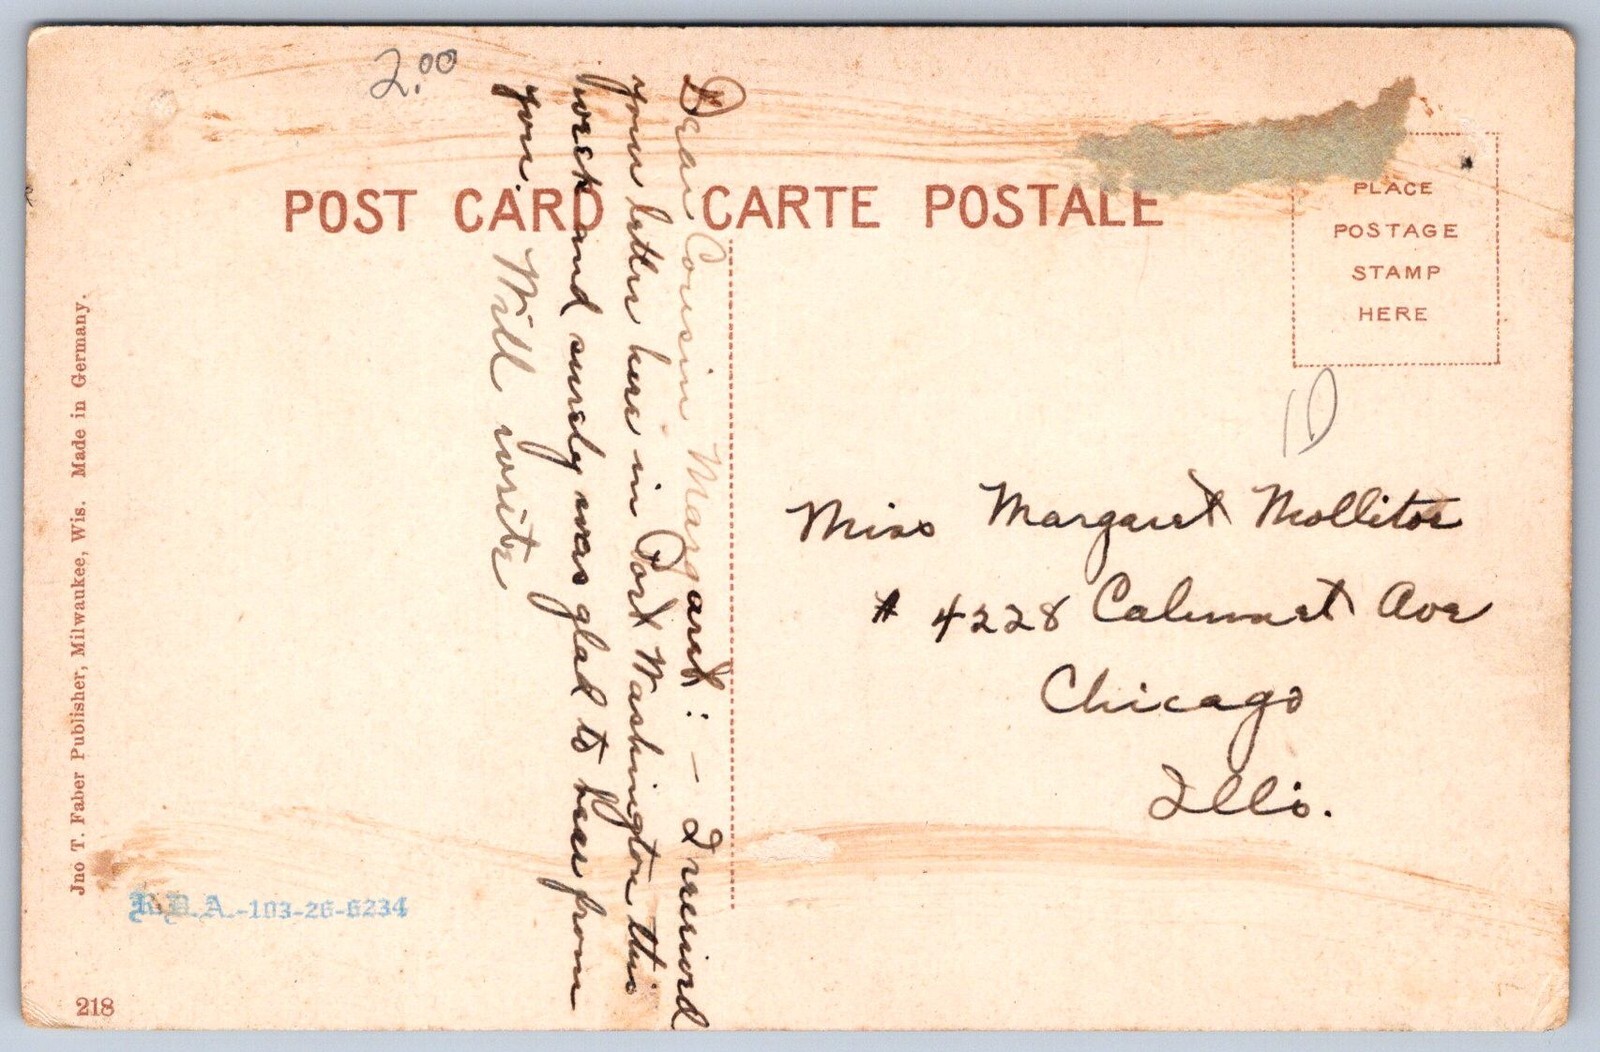 2.00
POST CARD CARTE POSTALE
PLACE
POSTAGE
STAMP
HERE
Dear Cousin Margaret: - I received
your letter here in Port Washington this
week and surely was glad to hear from
you. Will write
Miss Margaret Mollitor
# 4228 Calumet Ave
Chicago
Ills.
Jno T. Faber Publisher, Milwaukee, Wis. Made in Germany.
R.D.A.-103-26-6234
218